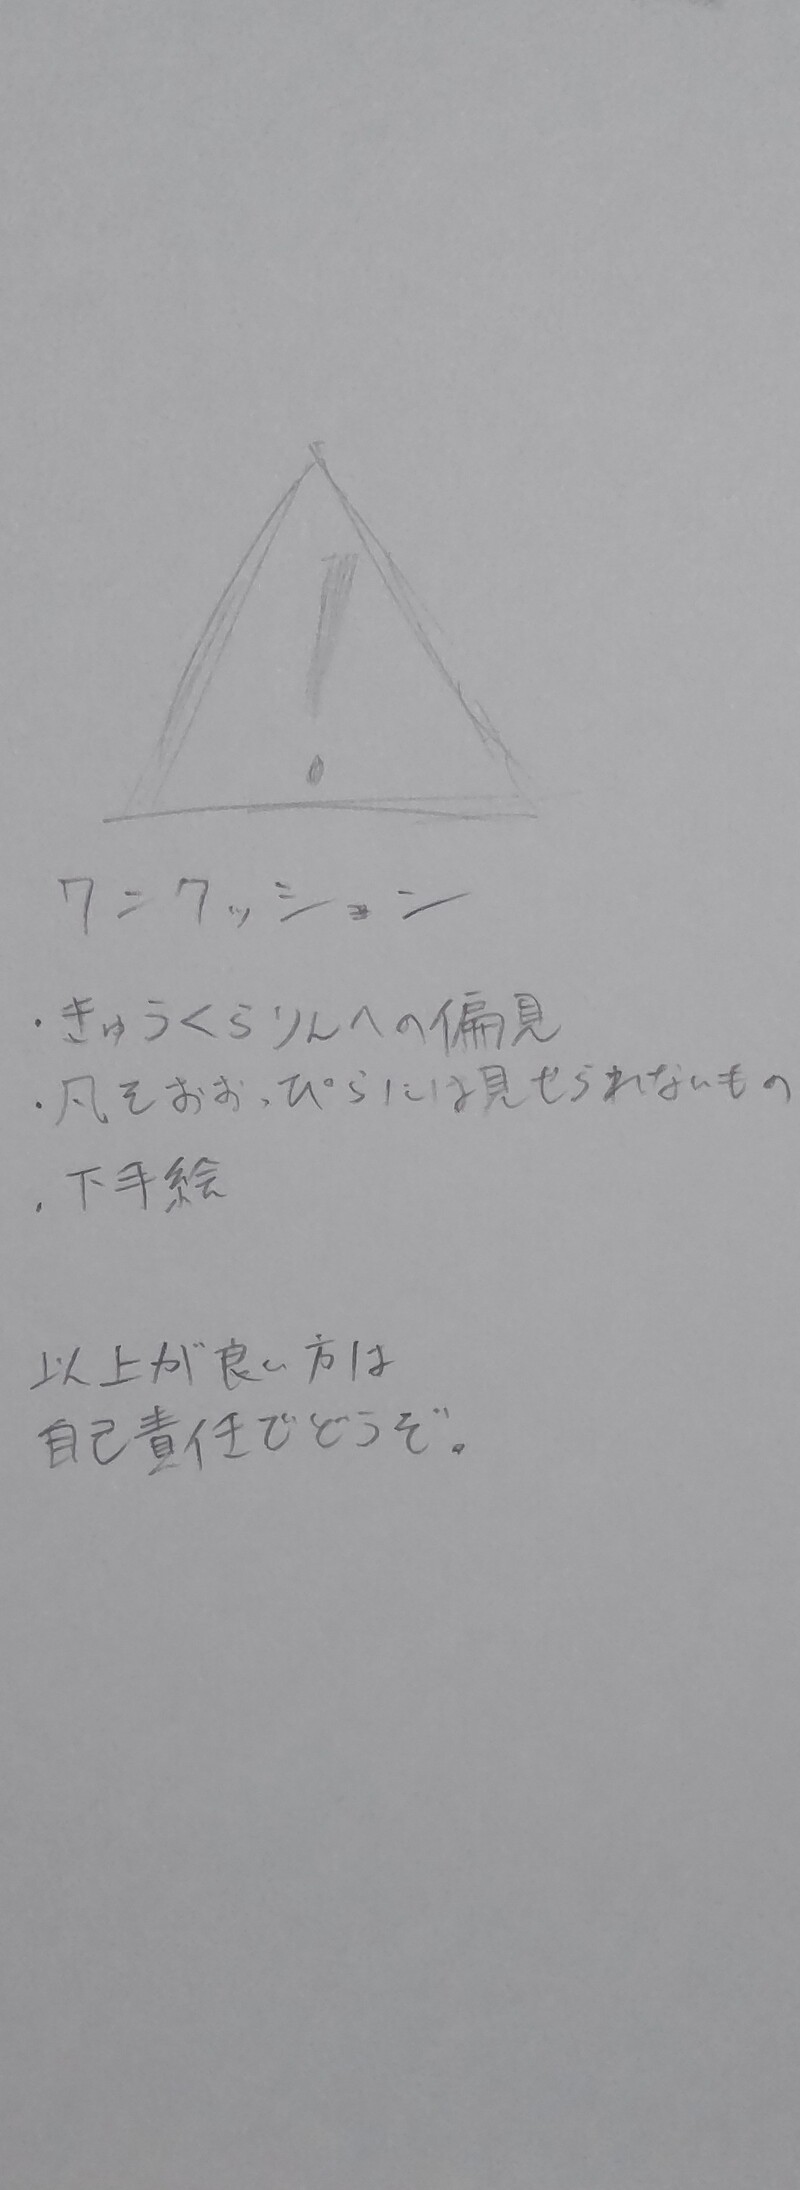 !
ワンクッション
・きゅうくらりんへの偏見
・凡そおおっぴらには見せられないもの
・下手絵
以上が良い方は
自己責任でどうぞ。